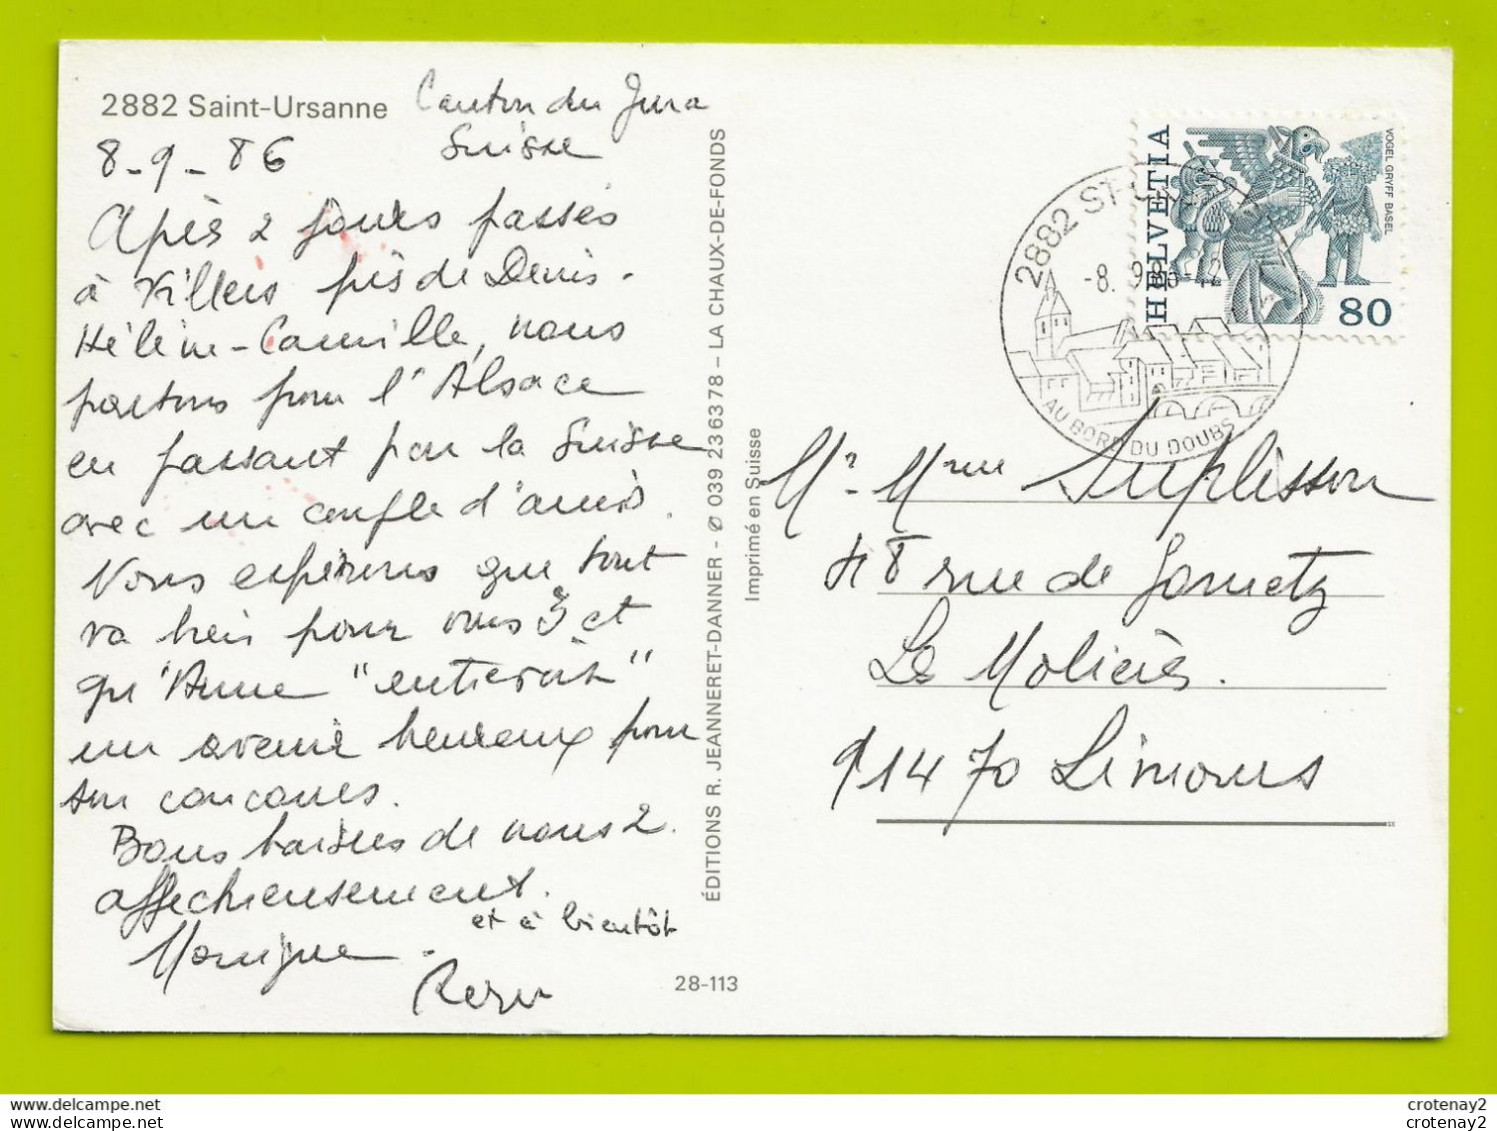 2882 Saint-Ursanne Canton du Jura
Suisse
8-9-86
Après 2 jours passés
à Villers près de Denis-
Hélène-Camille, nous
partons pour l'Alsace
en passant par la Suisse
avec un couple d'amis.
Nous espérons que tout
va bien pour vous 3 et
qu'Anne "entrevoit"
un avenir heureux pour
son concours.
Bons baisers de nous 2.
affectueusement.
et à bientôt
Monique.
28-113
ÉDITIONS R. JEANNERET-DANNER - ✆ 039 23 63 78 - LA CHAUX-DE-FONDS
Imprimé en Suisse
2882 ST-U
-8. 9. 86-12
AU BORD DU DOUBS
HELVETIA
VOGEL GRYFF BASEL
80
Mr Mme Suplisson
rue de
Le Molières.
91470 Limours
www.delcampe.net
www.delcampe.net
crotenay2
crotenay2